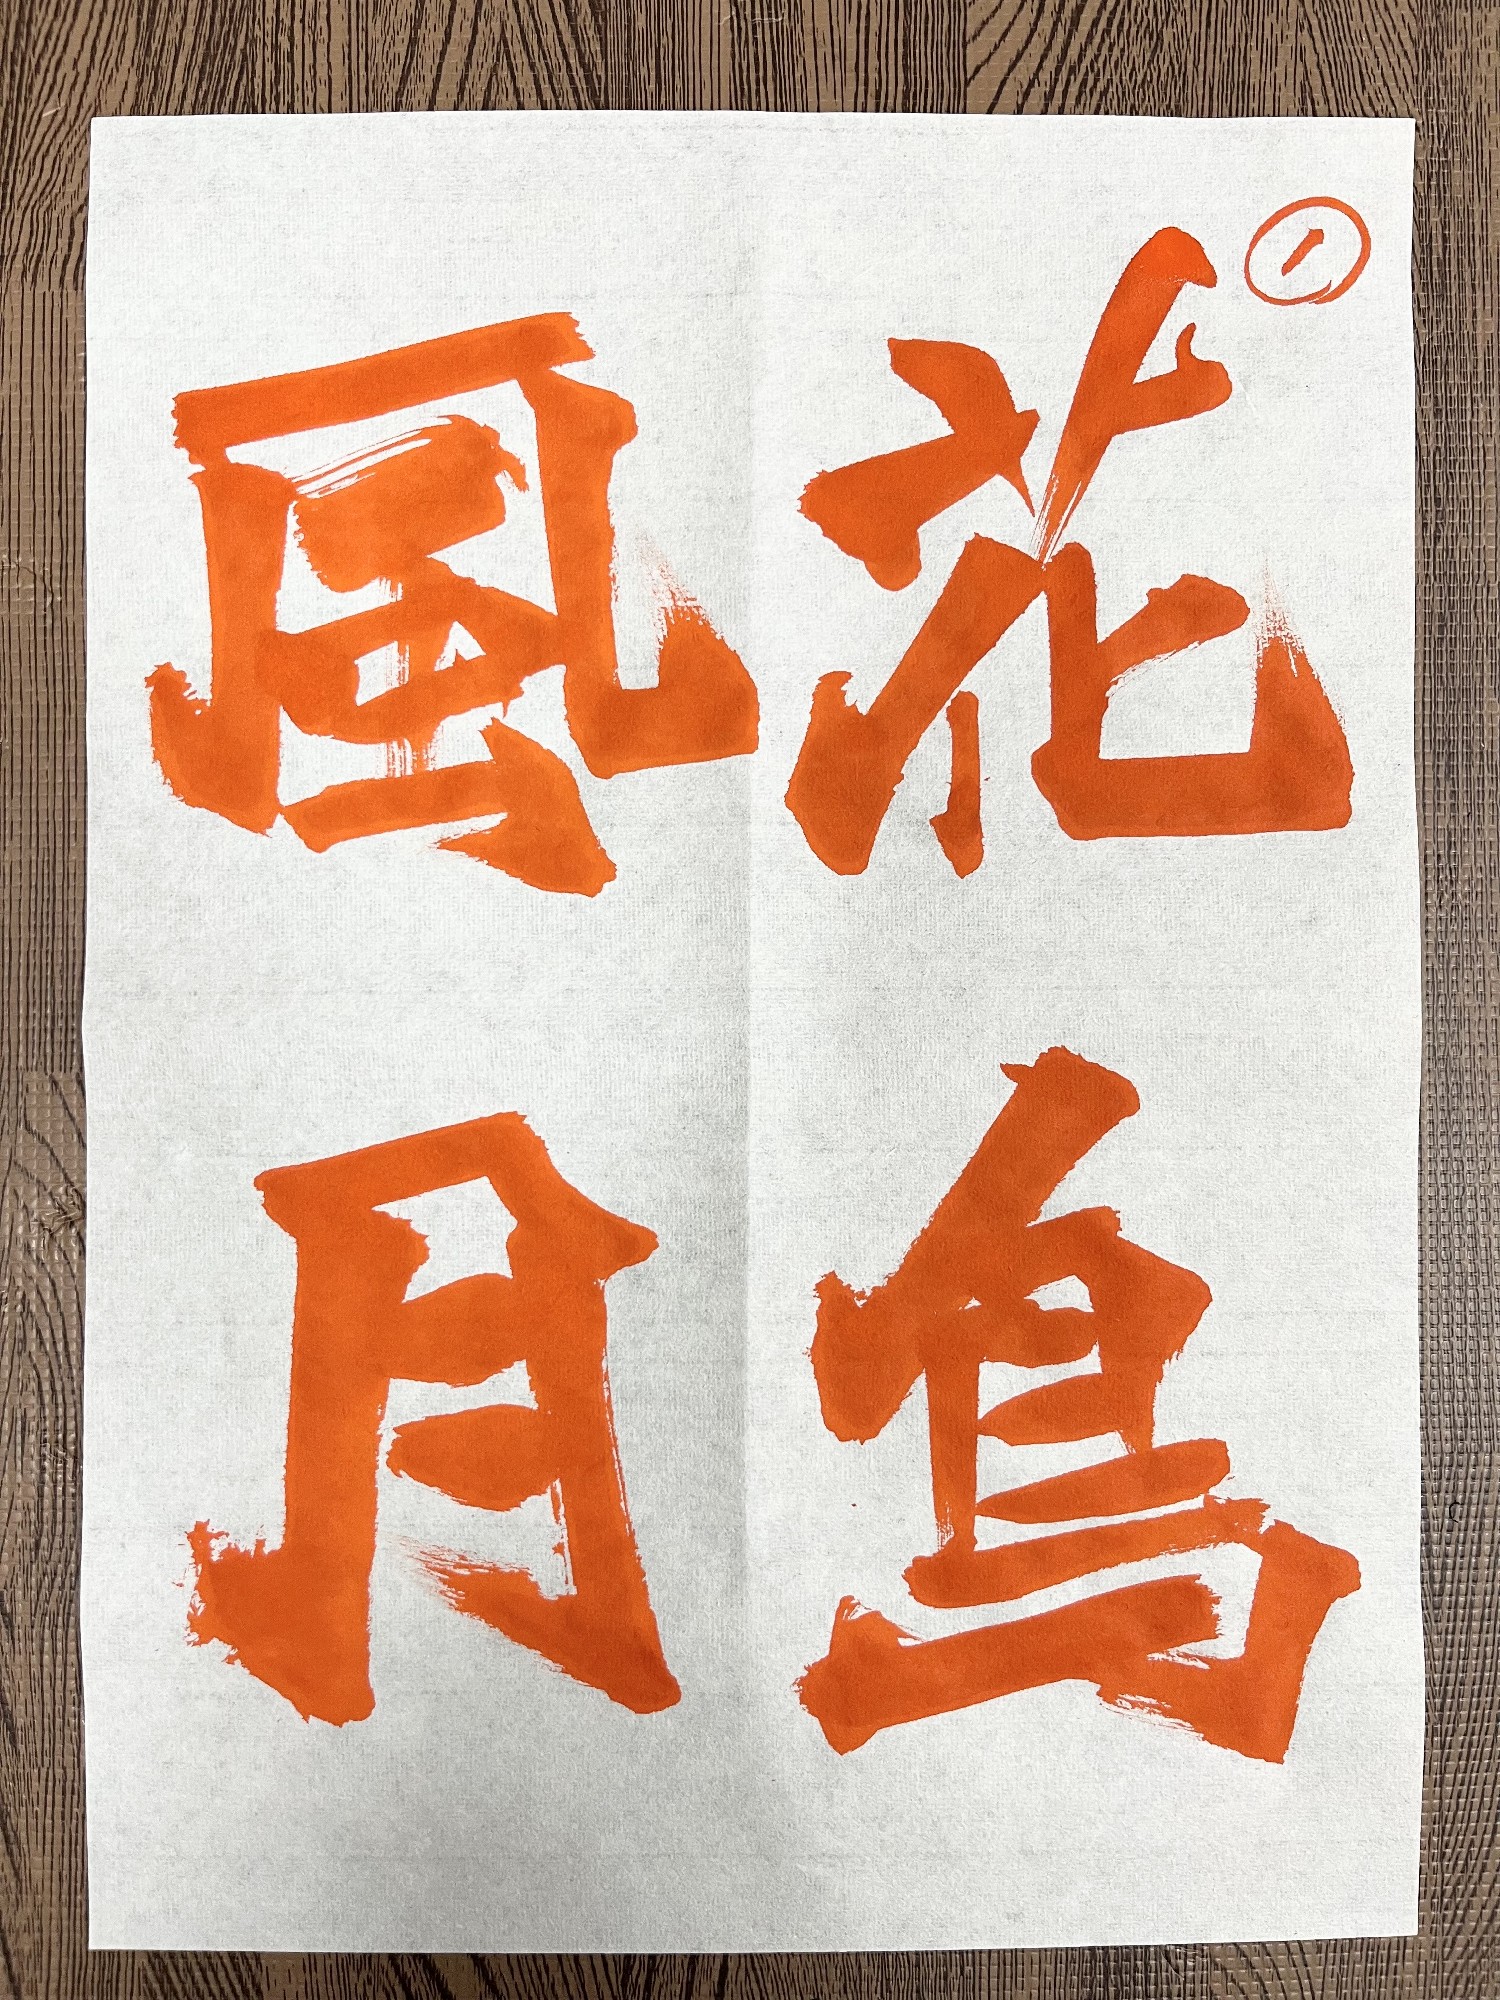 ①
花鳥
風月